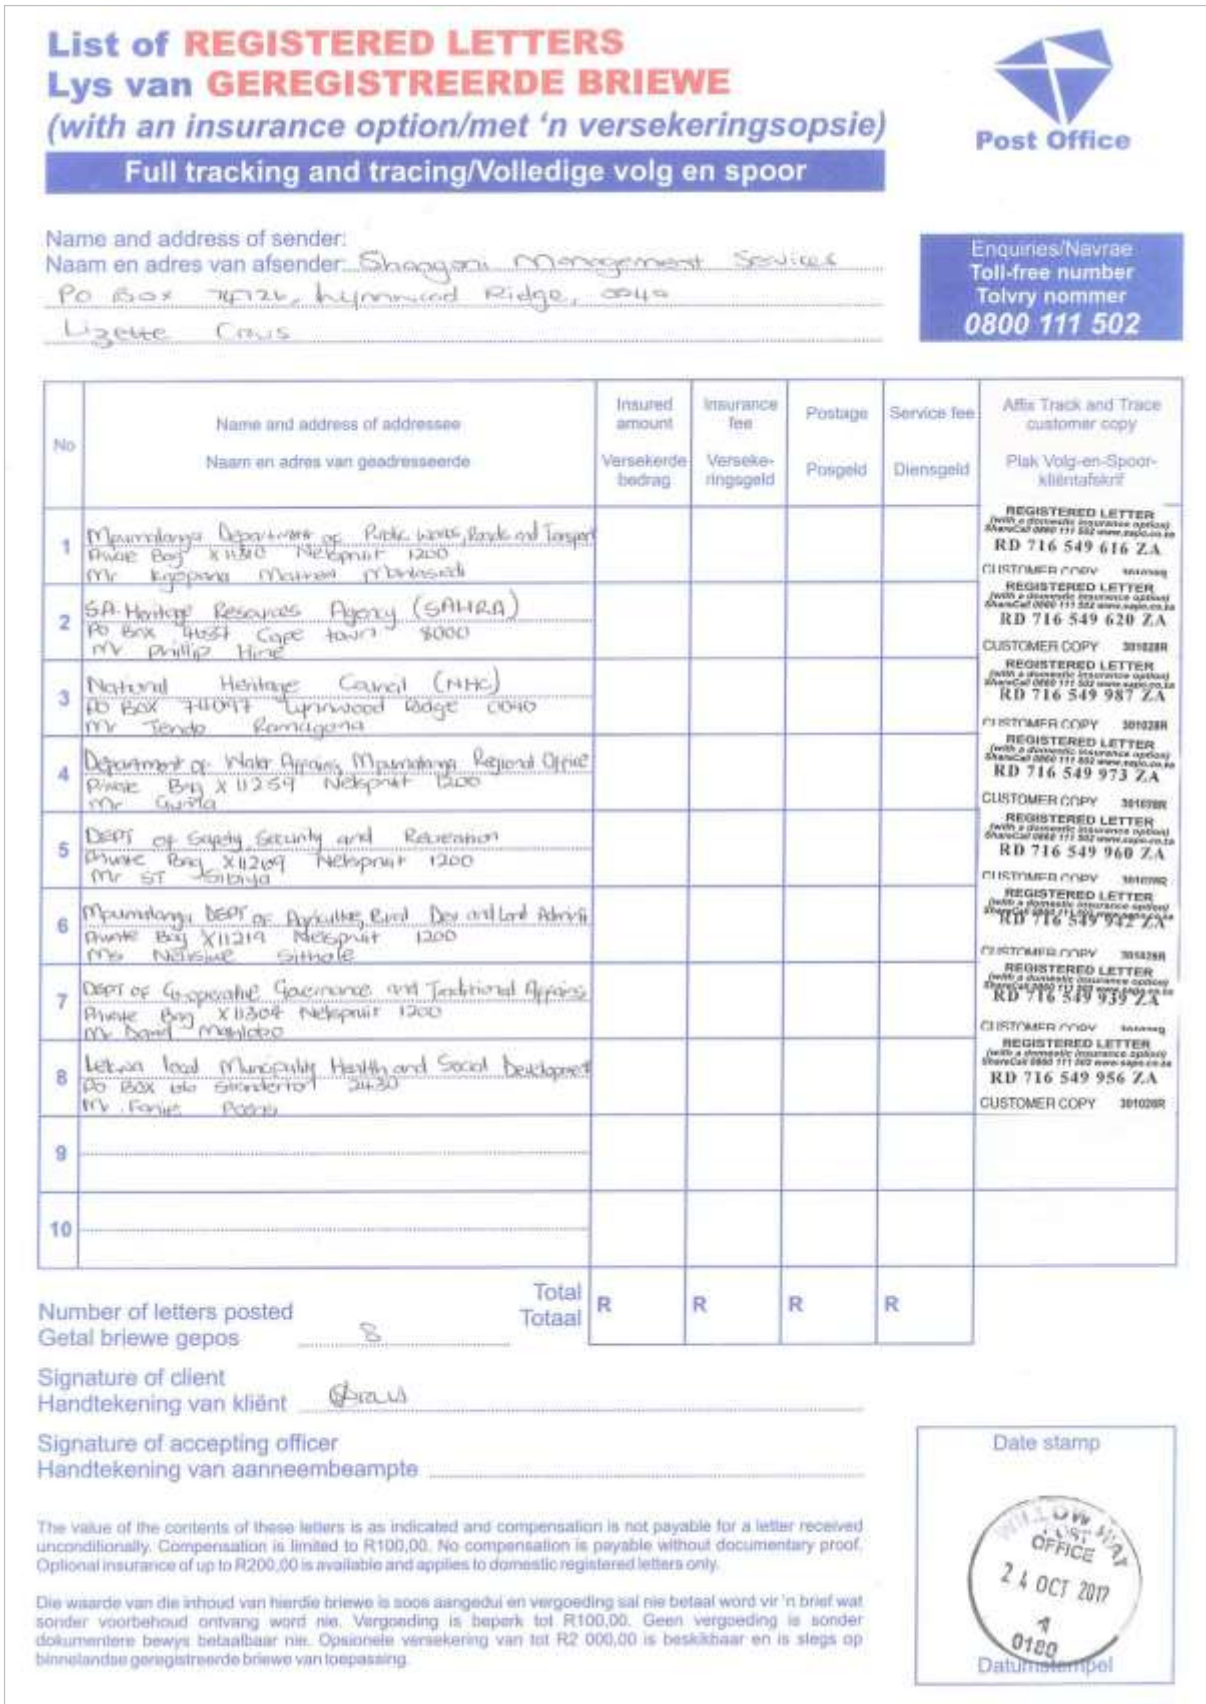 List of REGISTERED LETTERS
Lys van GEREGISTREERDE BRIEWE
(with an insurance option/met 'n versekeringsopsie)
Full tracking and tracing/Volledige volg en spoor
Post Office
Name and address of sender:
Naam en adres van afsender: Shangoni Management Services
PO Box 74726, Lynnwood Ridge, 0040
Lizette Crous
Enquiries/Navrae
Toll-free number
Tolvry nommer
0800 111 502
No
Name and address of addressee
Naam en adres van geadresseerde
Insured amount
Versekerde bedrag
Insurance fee
Verseke-ringsgeld
Postage
Posgeld
Service fee
Diensgeld
Affix Track and Trace customer copy
Plak Volg-en-Spoor-kliëntafskrif
1
Mpumalanga Department of Public Works, Roads and Transport
Private Bag X11310 Nelspruit 1200
Mr Mathew
REGISTERED LETTER
(with a domestic insurance option)
ShareCall 0860 111 502 www.sapo.co.za
RD 716 549 616 ZA
CUSTOMER COPY 301028R
2
SA Heritage Resources Agency (SAHRA)
PO Box 4637 Cape town 8000
Mr Phillip Hine
REGISTERED LETTER
(with a domestic insurance option)
ShareCall 0860 111 502 www.sapo.co.za
RD 716 549 620 ZA
CUSTOMER COPY 301028R
3
National Heritage Council (NHC)
PO BOX 74097 Lynnwood Ridge 0040
Mr Tendo Ramagoma
REGISTERED LETTER
(with a domestic insurance option)
ShareCall 0860 111 502 www.sapo.co.za
RD 716 549 987 ZA
CUSTOMER COPY 301028R
4
Department of Water Affairs, Mpumalanga Regional Office
Private Bag X11259 Nelspruit 1200
Mr
REGISTERED LETTER
(with a domestic insurance option)
ShareCall 0860 111 502 www.sapo.co.za
RD 716 549 973 ZA
CUSTOMER COPY 301028R
5
DEPT of Safety, Security and
Private Bag X11269 Nelspruit 1200
Mr ST Sibiya
REGISTERED LETTER
(with a domestic insurance option)
ShareCall 0860 111 502 www.sapo.co.za
RD 716 549 960 ZA
CUSTOMER COPY 301028R
6
Mpumalanga DEPT of Agriculture, Rural Dev and Land Admin
Private Bag X11219 Nelspruit 1200
Ms Sithole
REGISTERED LETTER
(with a domestic insurance option)
ShareCall 0860 111 502 www.sapo.co.za
RD 716 549 942 ZA
CUSTOMER COPY 301028R
7
DEPT of Cooperative Governance and Traditional Affairs
Private Bag X11304 Nelspruit 1200
Mr David Mahlobo
REGISTERED LETTER
(with a domestic insurance option)
ShareCall 0860 111 502 www.sapo.co.za
RD 716 549 939 ZA
CUSTOMER COPY
8
Lekwa local Municipality Health and Social Development
PO BOX Standerton 2430
Mr
REGISTERED LETTER
(with a domestic insurance option)
ShareCall 0860 111 502 www.sapo.co.za
RD 716 549 956 ZA
CUSTOMER COPY 301028R
9
10
Number of letters posted
Getal briewe gepos 8
Total
Totaal
R R R R
Signature of client
Handtekening van kliënt
Signature of accepting officer
Handtekening van aanneembeampte
The value of the contents of these letters is as indicated and compensation is not payable for a letter received
unconditionally. Compensation is limited to R100,00. No compensation is payable without documentary proof.
Optional insurance of up to R200,00 is available and applies to domestic registered letters only.
Die waarde van die inhoud van hierdie briewe is soos aangedui en vergoeding sal nie betaal word vir 'n brief wat
sonder voorbehoud ontvang word nie. Vergoeding is beperk tot R100,00. Geen vergoeding is sonder
dokumentere bewys betaalbaar nie. Opsionele versekering van tot R2 000,00 is beskikbaar en is slegs op
binnelandse geregistreerde briewe van toepassing.
Date stamp
WILLOW WAY
POST
OFFICE
24 OCT 2017
0180
Datumstempel